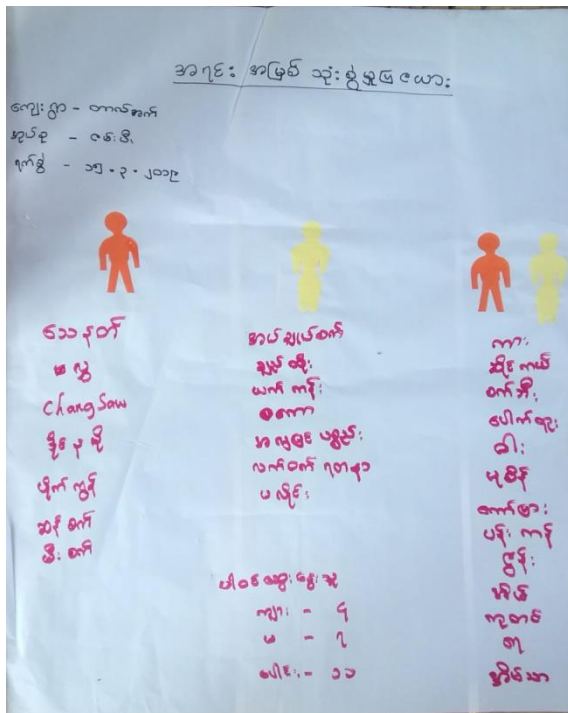 အရင်း အမြစ် သုံးစွဲမှုပြဇယား
ကျေးရွာ - တာလ်အက်
အုပ်စု - ငမ်းဖီ
ရက်စွဲ - ၁၅.၃.၂၀၁၉
သေနတ်
မလွှ
Chang Saw
ဒိုင်နမို
ပိုက်ကွန်
ဆန်စက်
မီးစက်
အပ်ချုပ်စက်
ချည်ထိုး
ယက်ကန်း
စကော
အလှပြင်ပစ္စည်း
လက်ဝတ်ရတနာ
ပလိုင်း
ကား
ဆိုင်ကယ်
စက်ဘီး
ပေါက်တူး
ဓါး
ပုဆိန်
တံစဉ်
ပန်းကန်
ဇွန်း
အိုး
ကုတင်
စာ
အိမ်သာ
ပါဝင်ဆွေးနွေးသူ
ကျား - ၄
မ - ၇
ပေါင်း - ၁၁